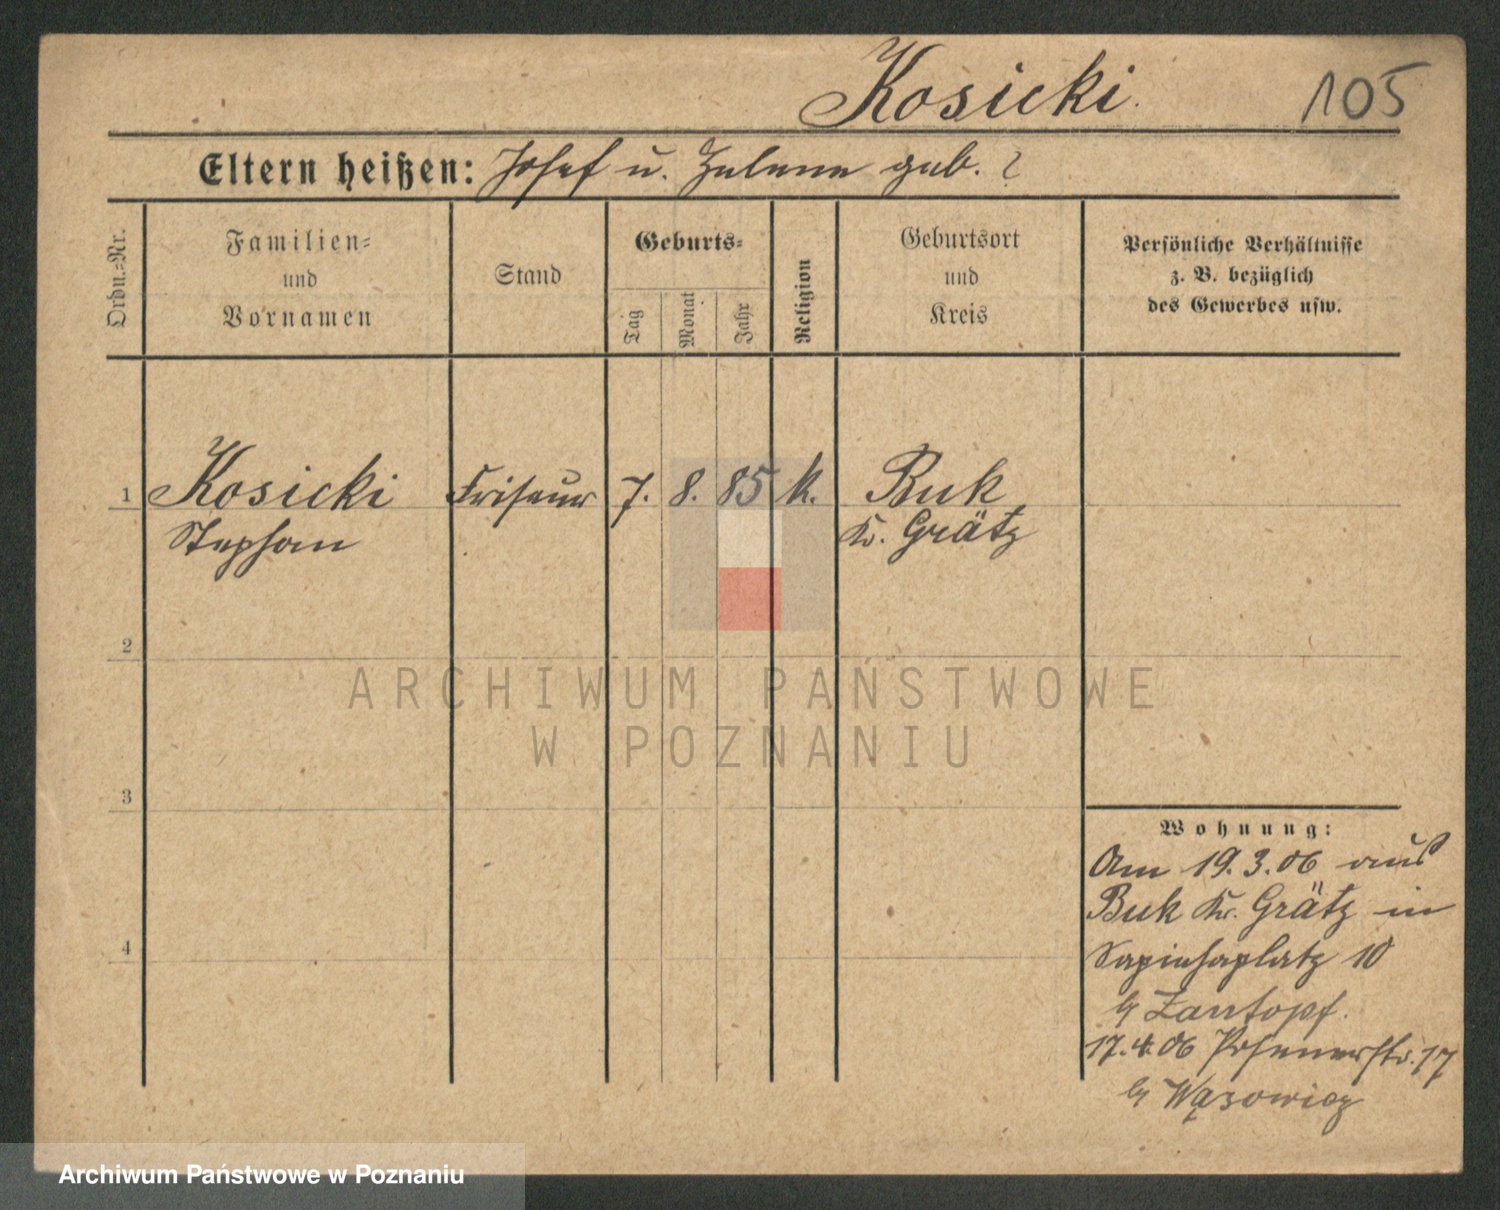 Kosicki.
105
Eltern heißen: Josef u. Helene geb. ?
Ordn.=Nr.
Familien=
und
Vornamen
Stand
Geburts=
Tag
Monat
Jahr
Religion
Geburtsort
und
Kreis
Persönliche Verhältnisse
z. B. bezüglich
des Gewerbes usw.
1 Kosicki Friseur 7. 8. 85 k. Buk
Stephan Kr. Grätz
2
3
4
Wohnung:
Am 19.3.06 aus
Buk Kr. Grätz in
Sapiehaplatz 10
b/ Zantopf.
17.4.06 Posenerstr. 17
b/ Wąsowicz
ARCHIWUM PAŃSTWOWE
W POZNANIU
Archiwum Państwowe w Poznaniu